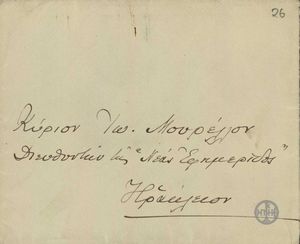 26
Κύριον Ἰω. Μουρέλλον
Διευθυντὴν τῆς "Νέας Ἐφημερίδος"
Ἡράκλειον